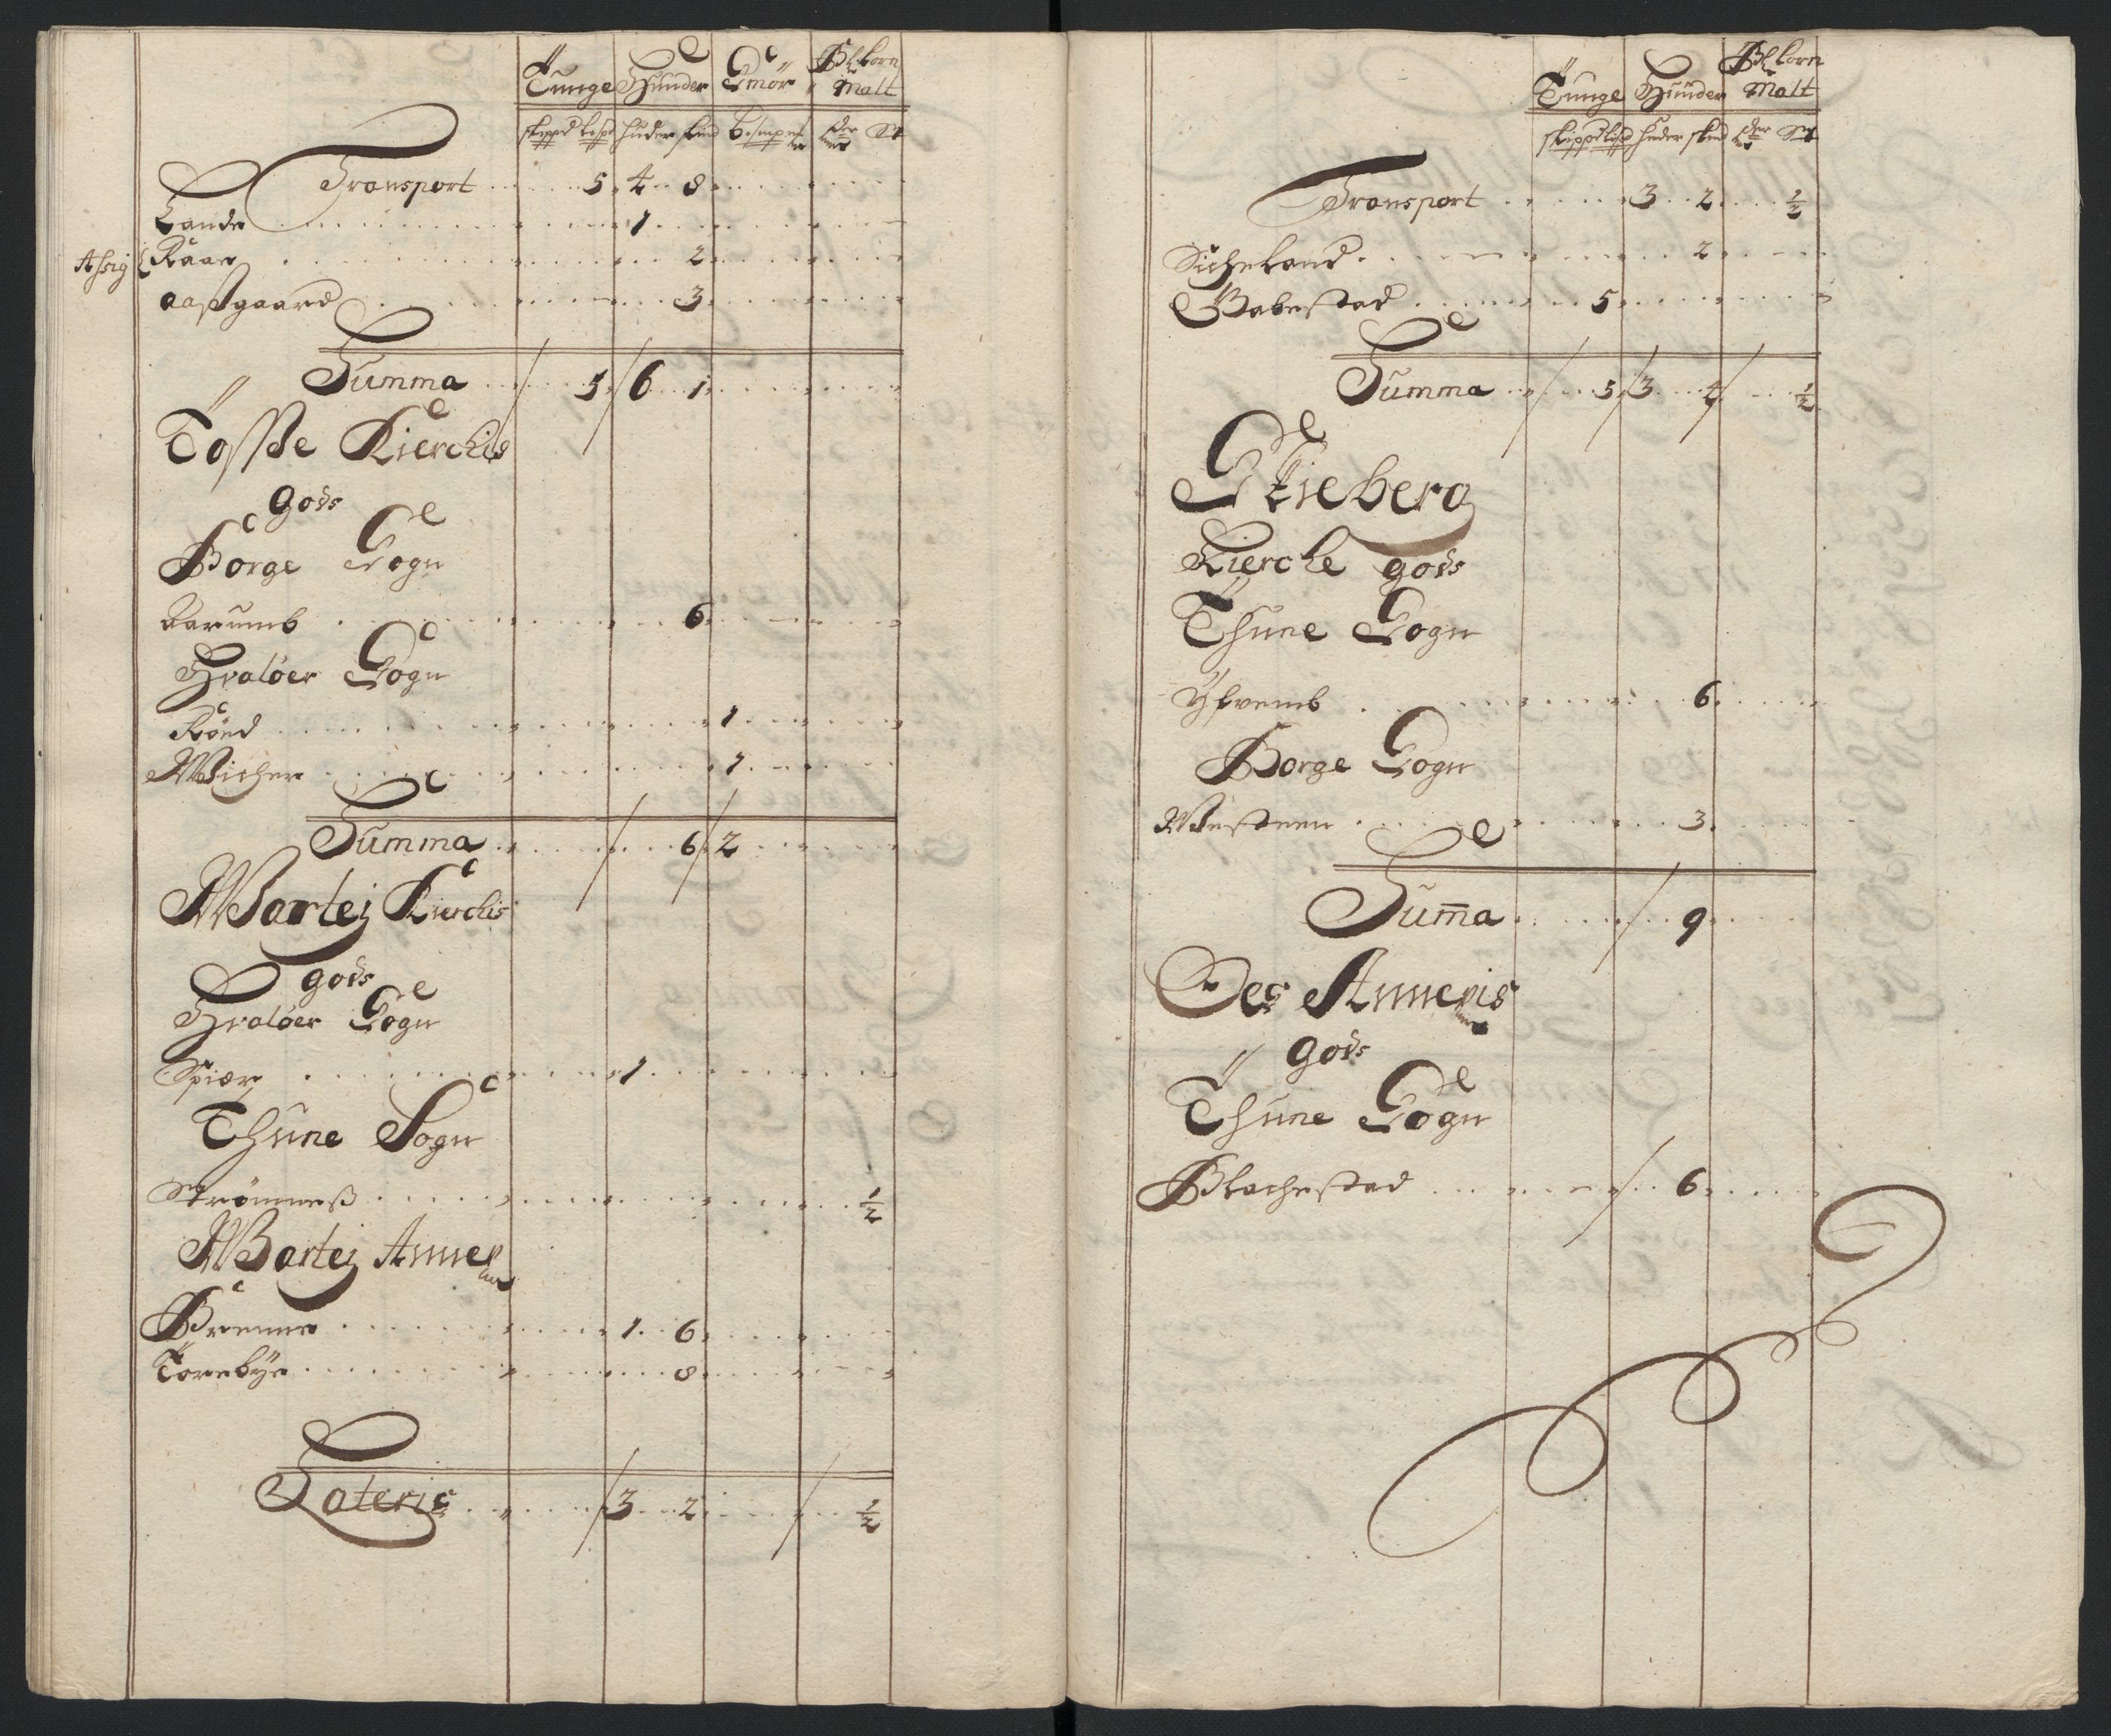 Tunge Huuder Smör Bl: korn
Malt
skippd lispd huder skind
Transport 5 4 8
Lande 1
Assig Raae 2
aassgaard 3
Summa 5 6 1
Tosse Kierchis
gods
Borge Sogn
Karumb 6
Hvaløer Sogn
Rød 1
Wicher 1
Summa 6 2
Wartej Kierchis
gods
Hvaløer Sogn
Spiær 1
Thune Sogn
Strømness ½
Wartej Annex
Brenne 1 6
Torebye 8
Lateris 3 2 ½
Tunge Huuder Bl: korn
Malt
skippd lispd huder skind
Transport 3 2 ½
Sicheland 2
Gabestad 5
Summa 5 3 4 ½
Skieberg
Kierche gods
Thune Sogn
Yfvemb 6
Borge Sogn
Westeen 3
Sum̅a 9
Des Annexis
gods
Thune Sogn
Blachestad 6